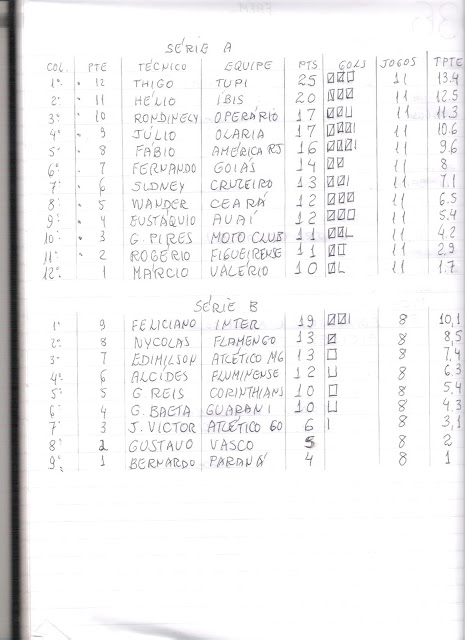 SÉRIE A
COL. PTE TÉCNICO EQUIPE PTS GOLS JOGOS TPTE
1º 12 THIGO TUPI 25 11 13.4
2º 11 HÉLIO ÍBIS 20 11 12.5
3º 10 RONDINELY OPERÁRIO 17 11 11.3
4º 9 JÚLIO OLARIA 17 11 10.6
5º 8 FÁBIO AMÉRICA RJ 16 11 9.6
6º 7 FERNANDO GOIÁS 14 11 8
7º 6 SIDNEY CRUZEIRO 13 11 7.1
8º 5 WANDER CEARÁ 12 11 6.5
9º 4 EUSTÁQUIO AVAÍ 12 11 5.4
10º 3 G. PIRES MOTO CLUB 11 11 4.2
11º 2 ROGÉRIO FIGUEIRENSE 11 11 2.9
12º 1 MÁRCIO VALÉRIO 10 11 1.7
SÉRIE B
1º 9 FELICIANO INTER 19 8 10,1
2º 8 NYCOLAS FLAMENGO 13 8 8,5
3º 7 EDIMILSON ATLÉTICO MG 13 8 7,4
4º 6 ALCÍDES FLUMINENSE 12 8 6.3
5º 5 G REIS CORINTHIANS 10 8 5.4
6º 4 G. BAETA GUARANI 10 8 4.3
7º 3 J. VICTOR ATLÉTICO GO 6 8 3,1
8º 2 GUSTAVO VASCO 5 8 2
9º 1 BERNARDO PARANÁ 4 8 1